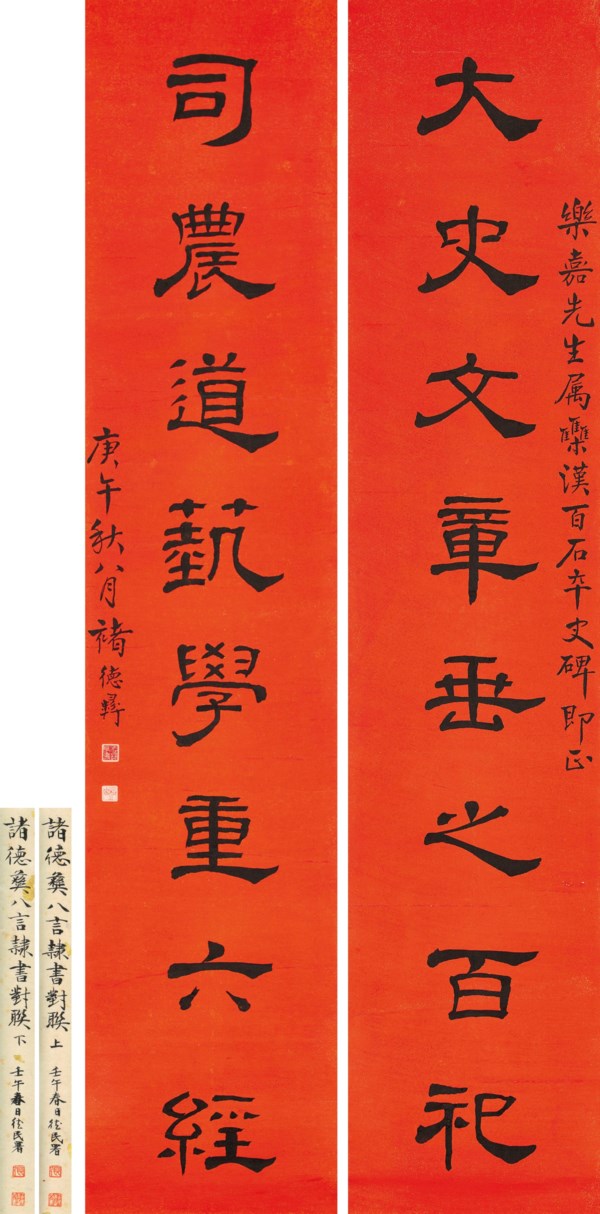 樂嘉先生属檃漢百石卒史碑即正
大史文章垂之百祀
司農道藝學重六經
庚午秋八月褚德彝
諸德彝八言隸書對聯上 壬午春日徐民署
諸德彝八言隸書對聯下 壬午春日徐民署